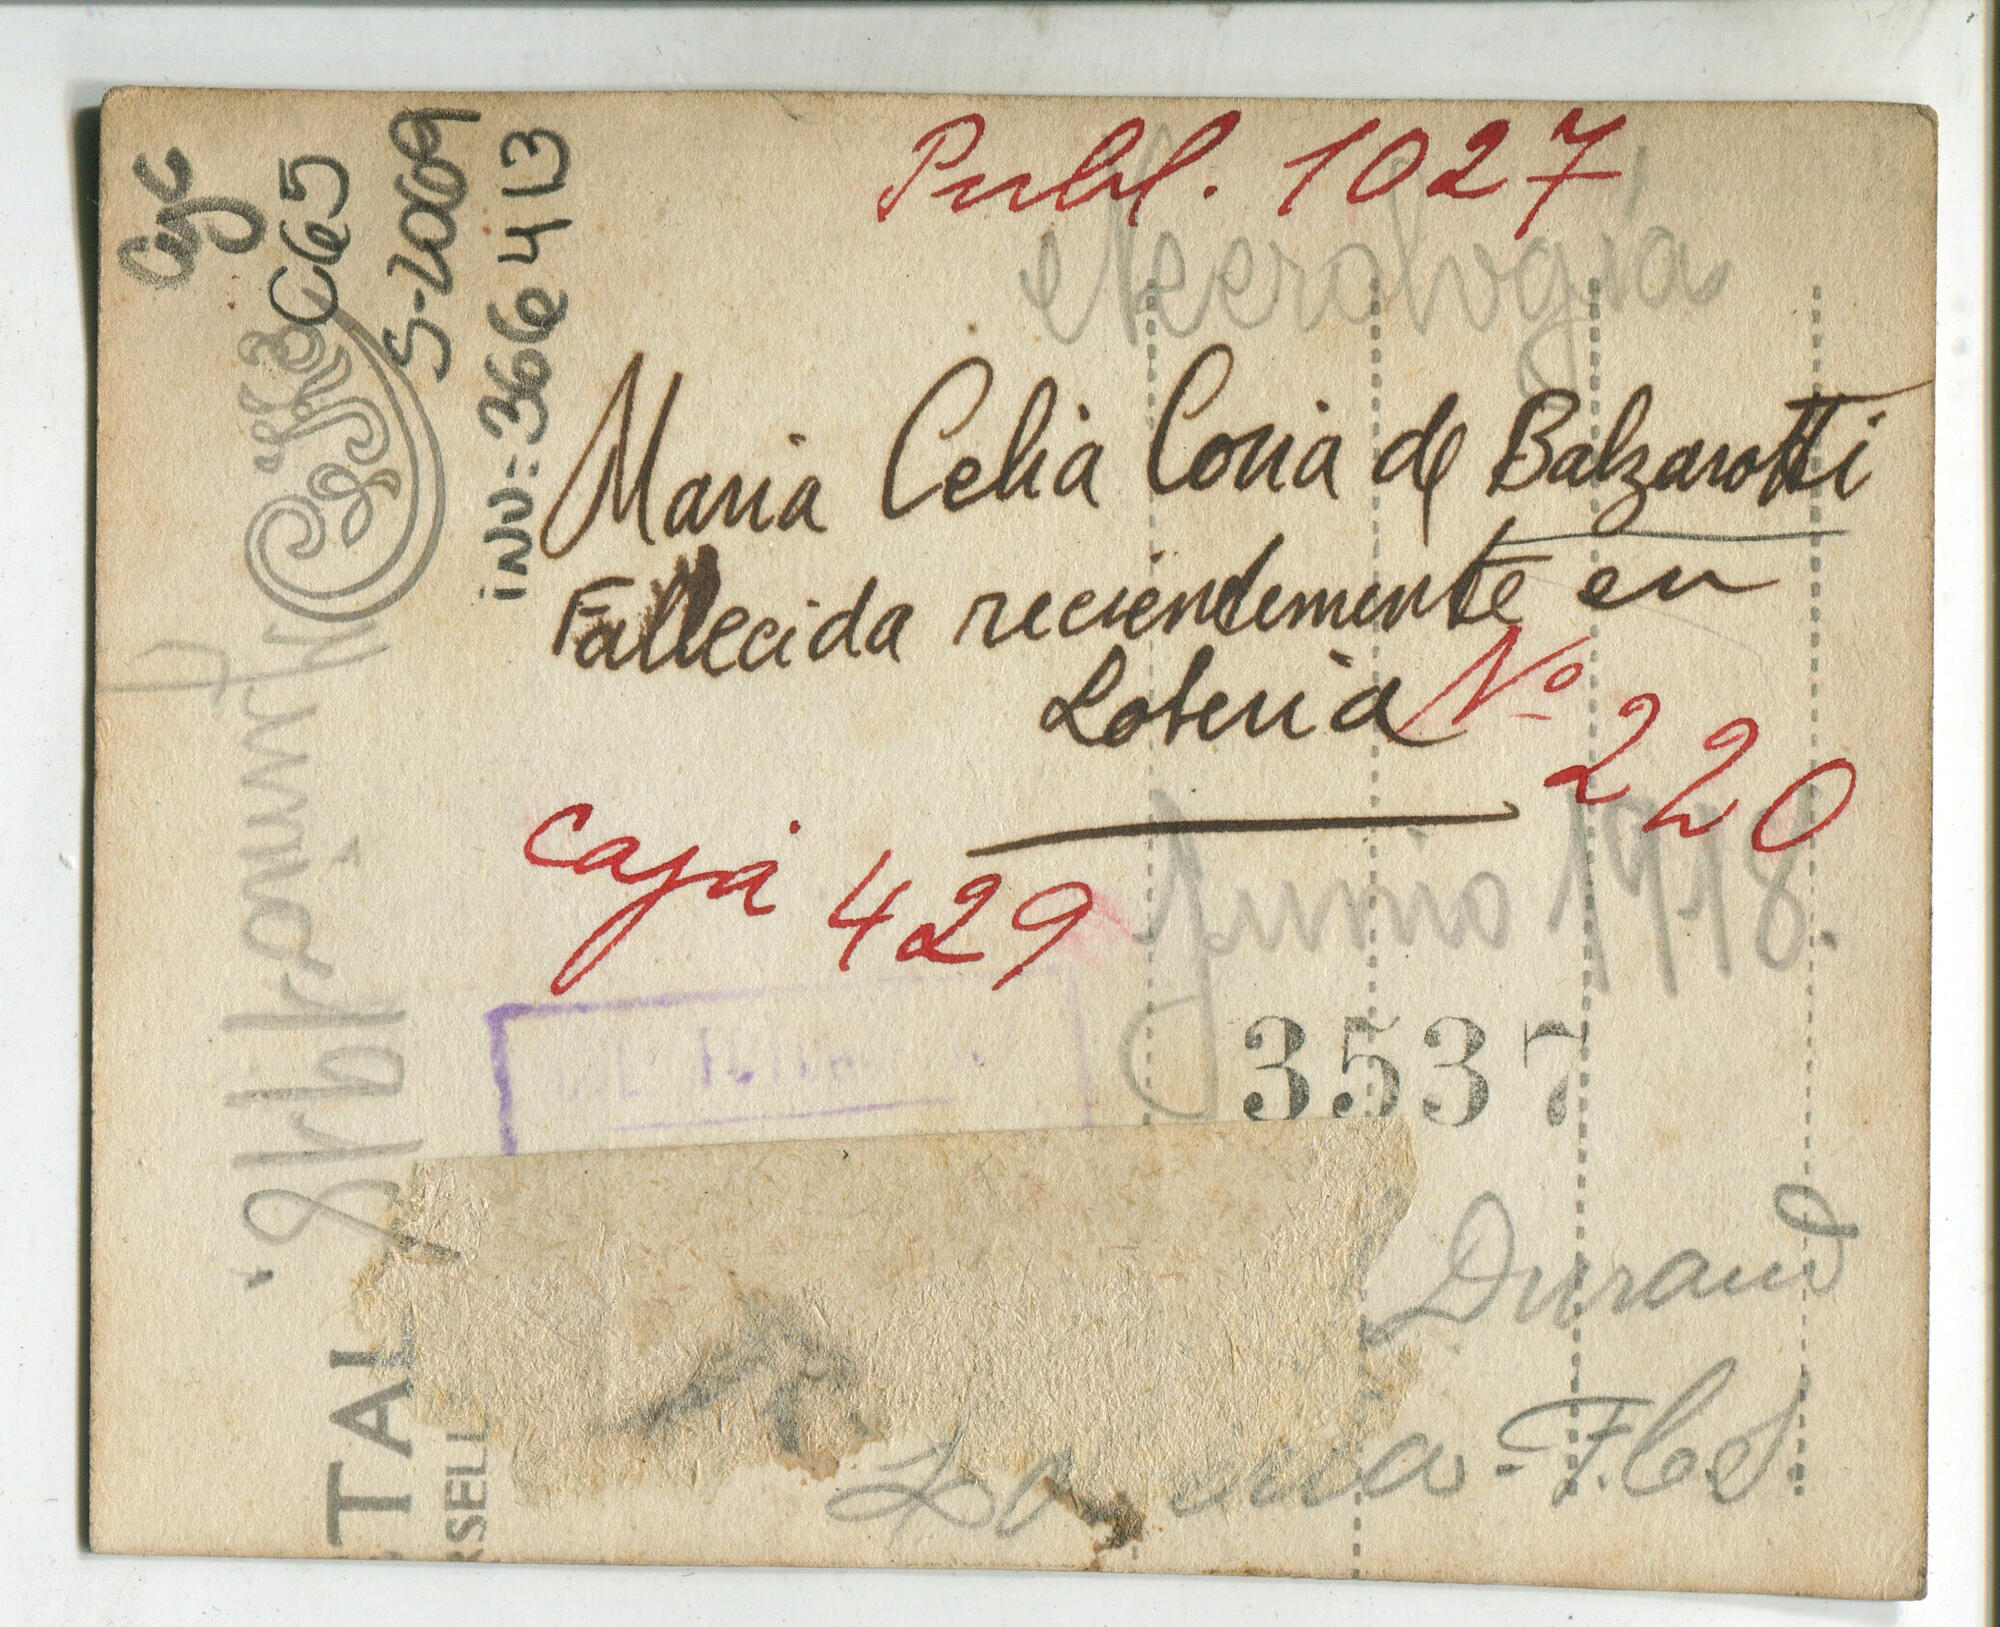 Publ. 1027
Necrología
Maria Celia Coria de Balzarotti
Fallecida reciendemente en
Loberia Nº 220
Caja 429
Junio 1918.
3537
Durand
Lo eria - F.C.S.
C65
S-2069
INV: 366413
TAL
RSELL